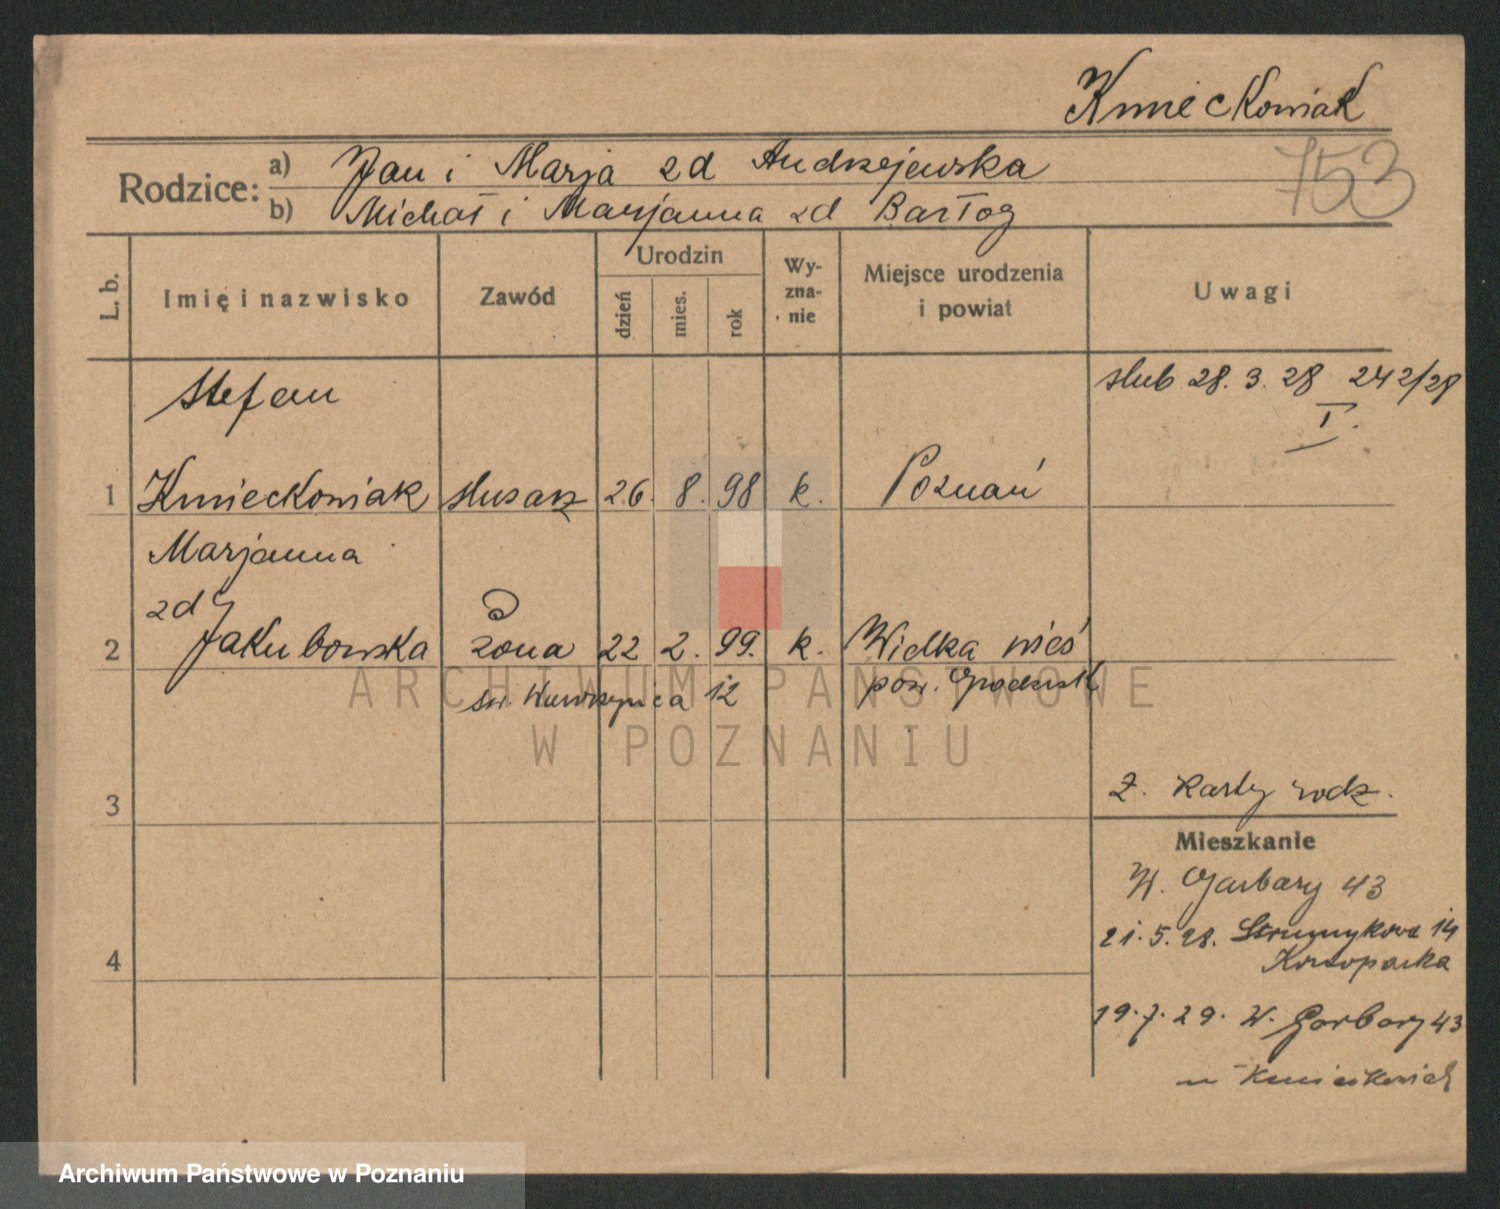 Kmieckowiak
Rodzice: a) Jan i Marja zd Andrzejewska
753
b) Michał i Marjanna zd Bartog
L. b.
Imię i nazwisko
Zawód
Urodzin
dzień
mies.
rok
Wy-
zna-
nie
Miejsce urodzenia
i powiat
Uwagi
Stefan
ślub 28. 3. 28 242/28
I.
1 Kmieckowiak ślusarz 26. 8. 98 k. Poznań
Marjanna
zd
2 Jakubowska żona 22 2. 99. k. Wielka wieś
św. Wawrzyńca 12 pow. Grodzisk
Z. Karty rodz.
3
Mieszkanie
W. Garbary 43
21. 5. 28. Strumykowa 14
19. 7. 29. W. Garbary 43
4
u Kmieckowiak
ARCHIWUM PAŃSTWOWE
W POZNANIU
Archiwum Państwowe w Poznaniu